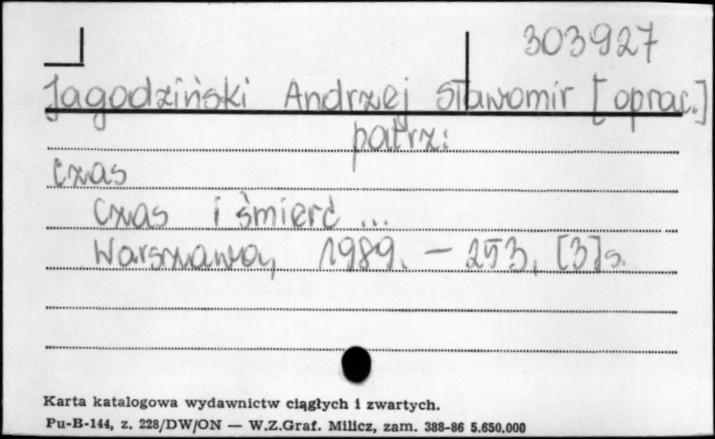 303927
Jagodziński Andrzej Sławomir [oprac.]
patrz:
Czas
Czas i śmierć ...
Warszawa, 1989. – 253, [3] s.
Karta katalogowa wydawnictw ciągłych i zwartych.
Pu-B-144, z. 228/DW/ON — W.Z.Graf. Milicz, zam. 388-86 5.650.000